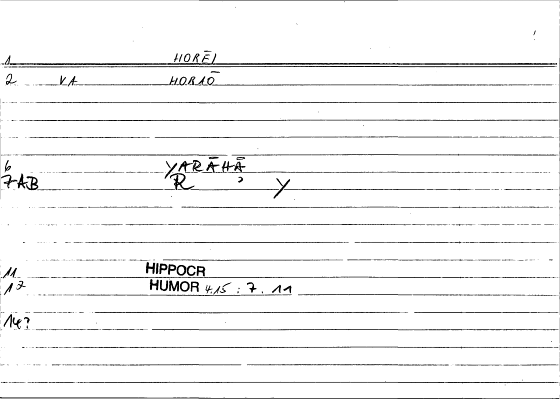 1 HORĒI
2 VA HORAŌ
6 YARĀHĀ
7AB R ? Y
11 HIPPOCR
12 HUMOR 4.15 : 7 . 11
14?